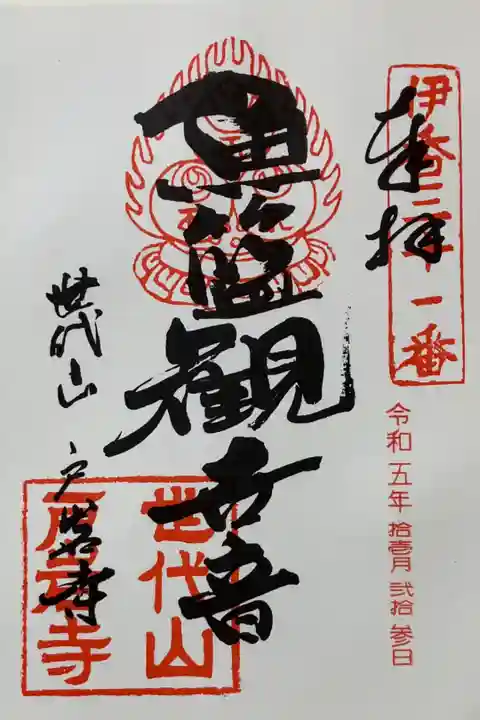 伊香三十一番
奉拝
令和五年 拾壱月 弐拾参日
魚籃観世音
世代山 戸岩寺
世代山
戸岩寺